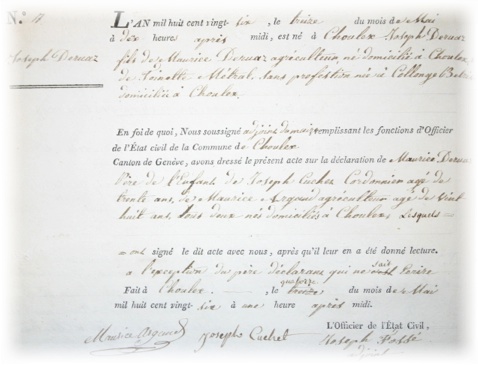 N.º 17
Joseph Deruaz
L'AN mil huit cent vingt-six, le treize du mois de Mai
à dix heure après midi, est né à Choulex Joseph Deruaz
fils de Maurice Deruaz agriculteur né domicilié à Choulex
de Métral, sans profession née à Collonge
domiciliée à Choulex.
En foi de quoi, Nous soussigné adjoint du maire remplissant les fonctions d'Officier
de l'État civil de la Commune de Choulex
Canton de Genève, avons dressé le présent acte sur la déclaration de Maurice Deruaz
Père de l'Enfant de Joseph Cuchet Cordonnier agé de
trente ans, de Maurice agriculteur agé de vint
huit ans, tous deux nés domiciliés à Choulex, Lesquels
ont signé le dit acte avec nous, après qu'il leur en a été donné lecture.
a l'exception du père déclarant qui ne sait Ecrire
Fait à Choulex, le quatorze du mois de Mai
mil huit cent vingt-six à une heure après midi.
L'Officier de l'État Civil,
Maurice
Josephs Cuchet
Joseph
adjoint